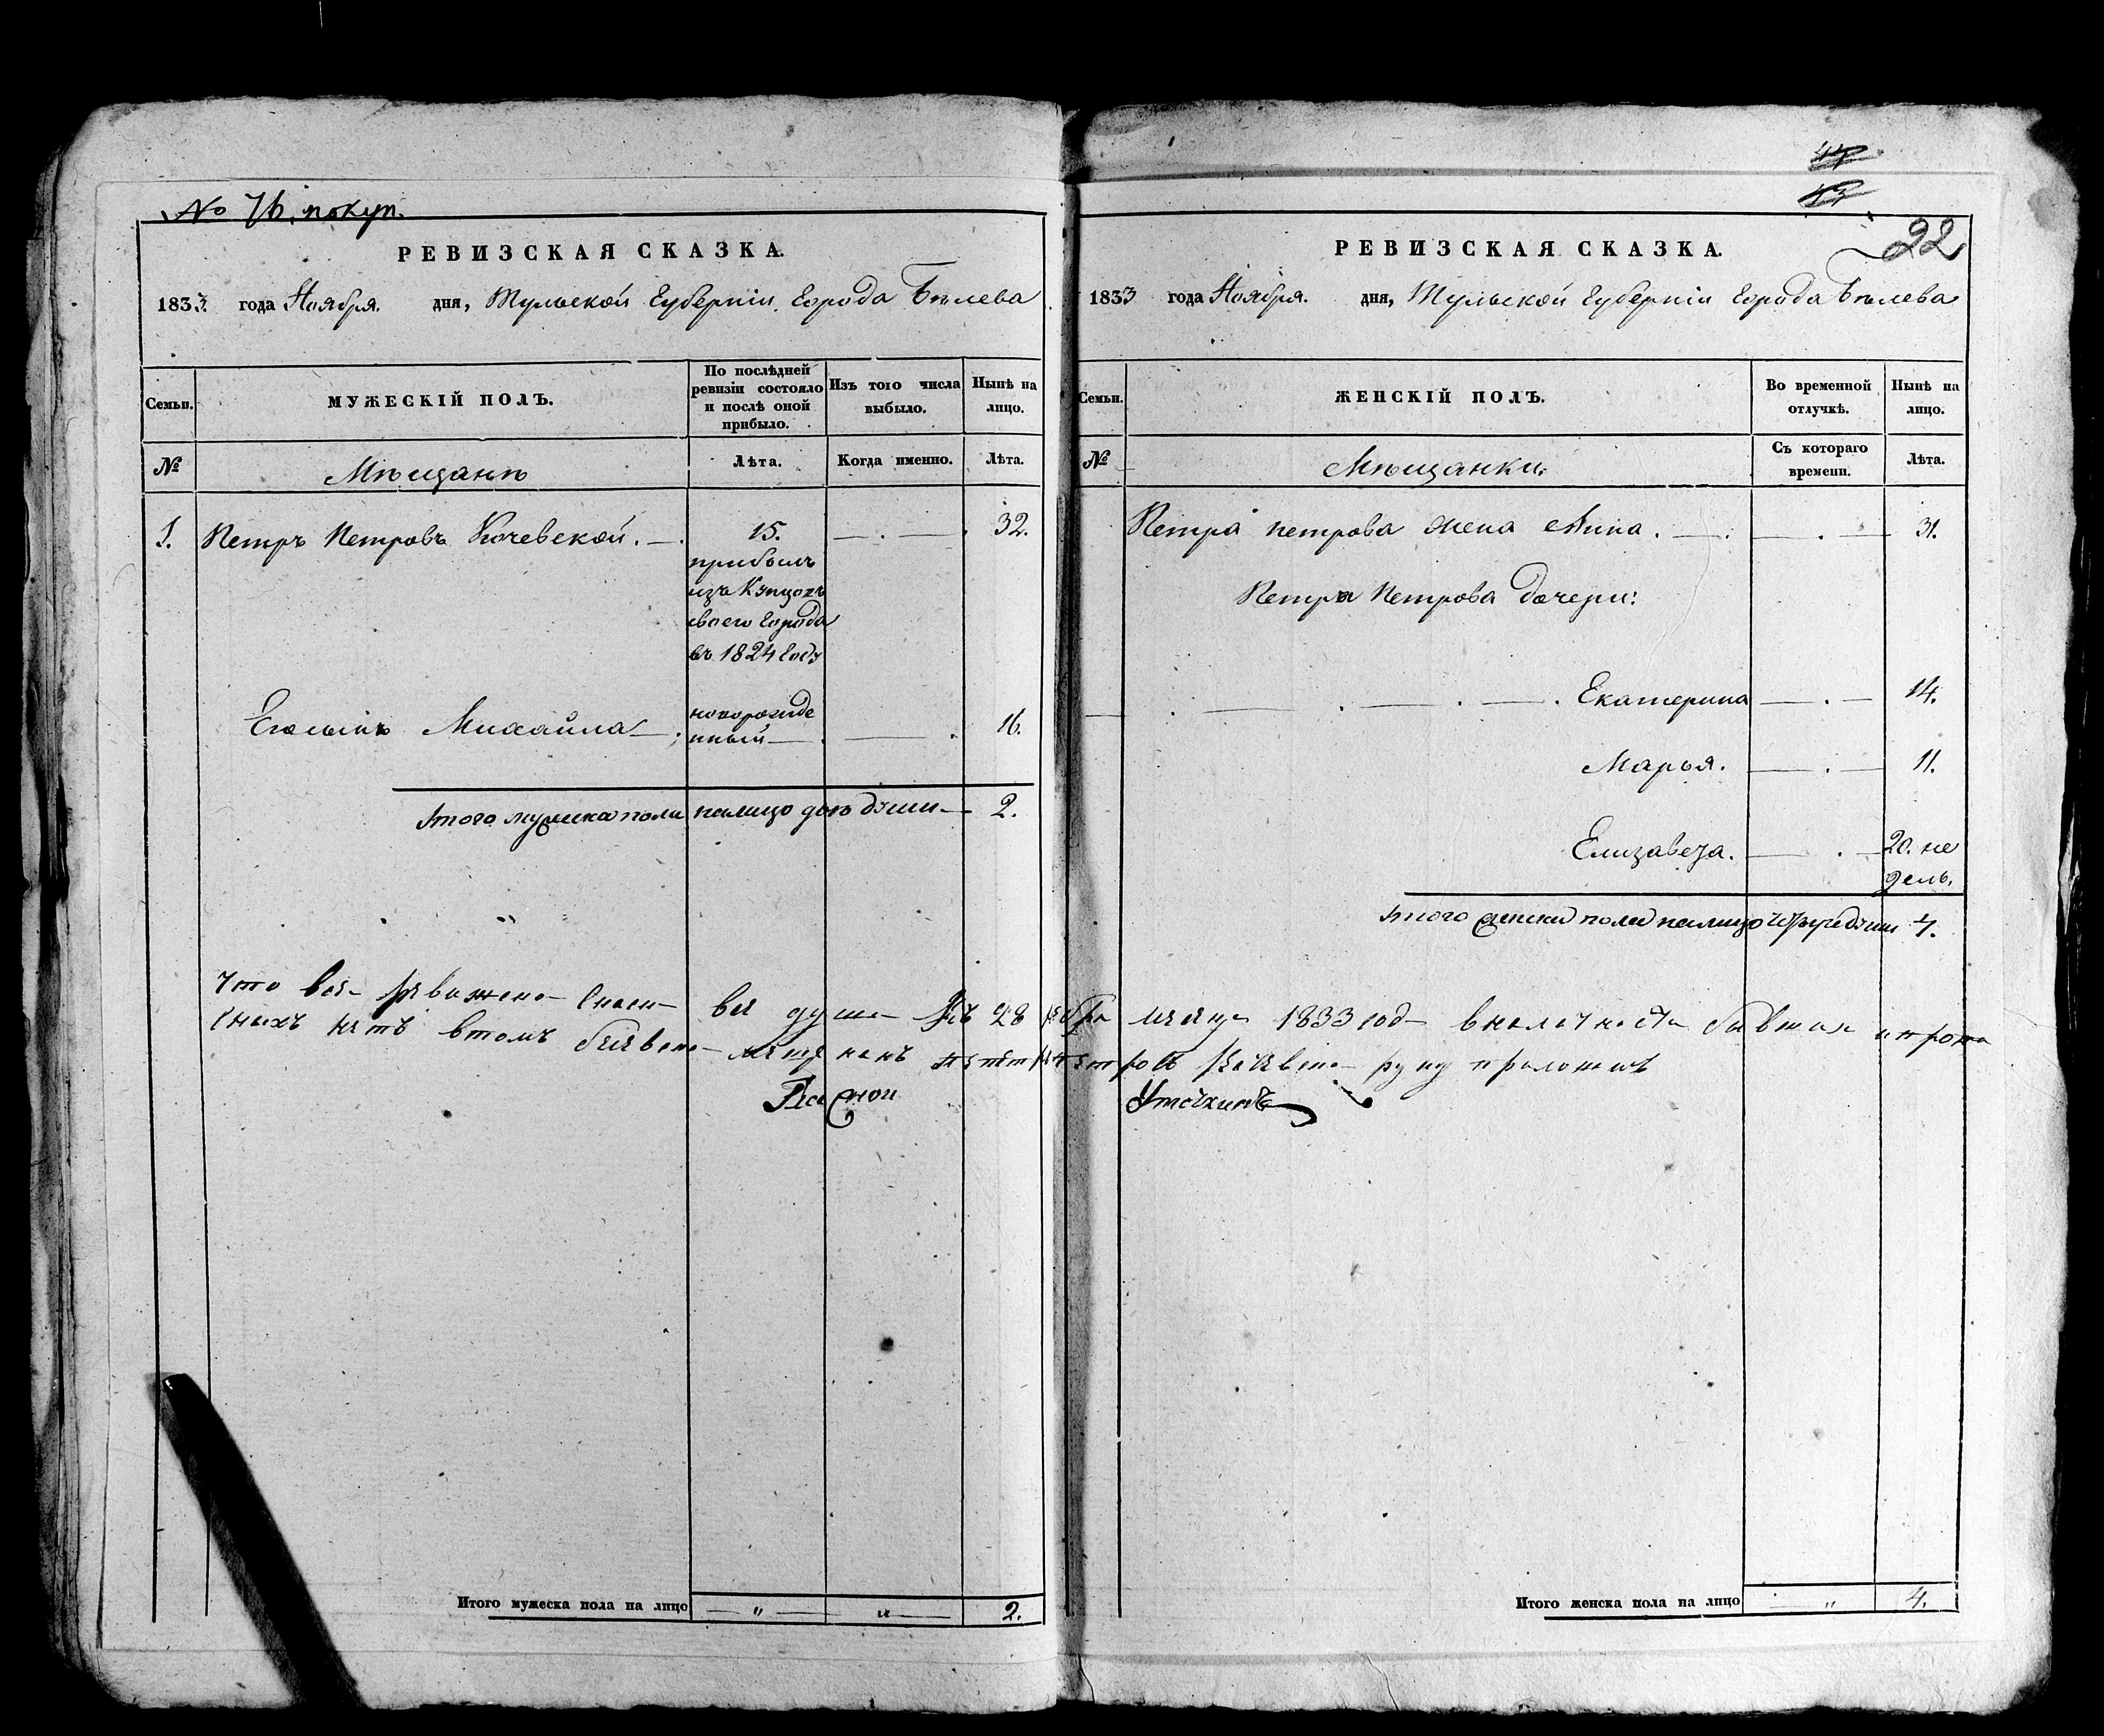 № 76. покуп.
РЕВИЗСКАЯ СКАЗКА.
1833. года Ноября. дня, Тульской Губерніи, Города Бѣлева
Семьи.
МУЖЕСКІЙ ПОЛЪ.
По послѣдней ревизіи состояло и послѣ оной прибыло.
Изъ того числа выбыло.
Нынѣ на лицо.
№
Мѣщанѣ
Лѣта.
Когда именно.
Лѣта.
1. Петръ Петровъ Кочевской. 15. 32.
прибылъ
изъ Купцовъ
своего Города
въ 1824 Году
Егосынъ Михайла новорожде 16.
нный
Итого мужеска пола налицо двѣ души 2.
Что вся
вся душа 28
нѣтъ втомъ
Итого мужеска пола на лицо " " 2.
44
43
22
РЕВИЗСКАЯ СКАЗКА.
1833 года Ноября. дня, Тульской Губерніи Города Бѣлева
Семьи.
ЖЕНСКІЙ ПОЛЪ.
Во временной отлучкѣ.
Нынѣ на лицо.
№
Мѣщанки:
Съ котораго времени.
Лѣта.
Петра петрова жена Анна. 31.
Петра Петрова дочери:
Екатерина 14.
Марья. 11.
Елизавета. 20. не
дель.
Итого женска пола налицо четыре души 4.
1833 год
руку приложилъ
Уточкинъ
Итого женска пола на лицо " 4.